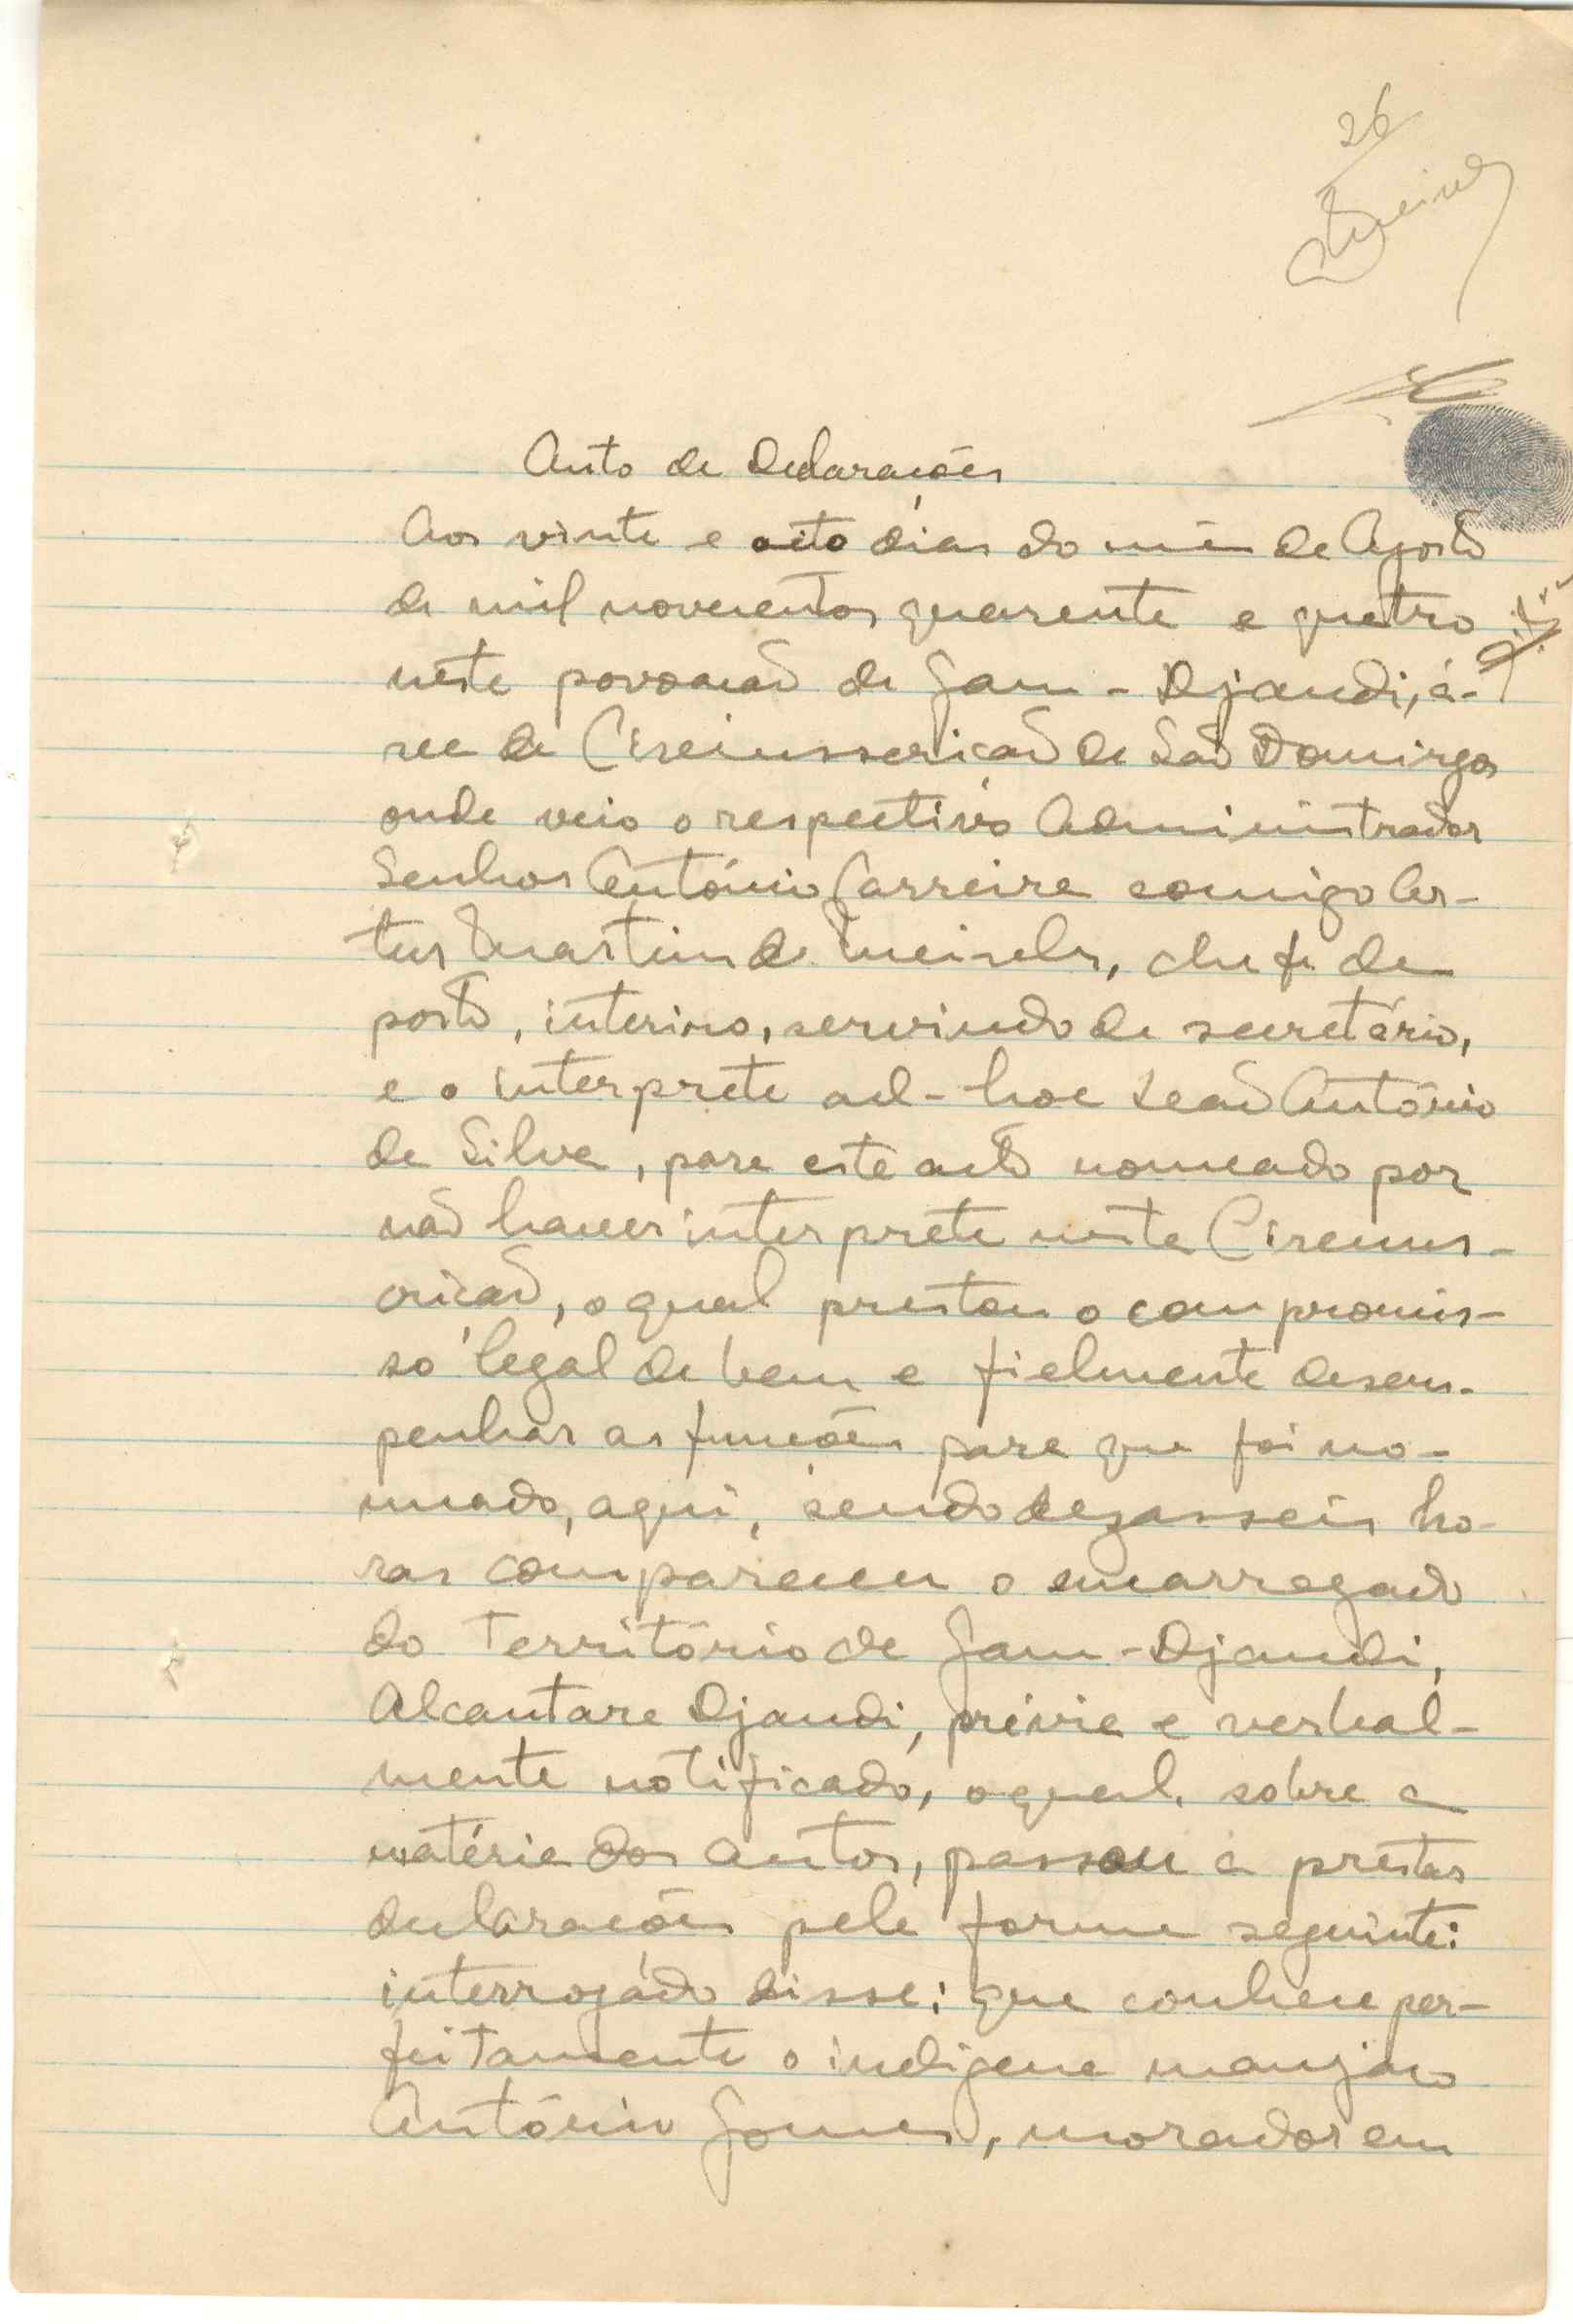 26
Auto de Declarações
Aos vinte e oito dias do mês de Agosto
de mil novecentos quarenta e quatro
nesta povoação de Jam-Djandi, á-
rea da Circunscrição de São Domingos
onde veio o respectivo Administrador
Senhor António Carreira comigo Ar-
tur Martins de Meireles, chefe de
posto, interino, servindo de secretário,
e o interprete ad-hoc Leão António
da Silva, para este acto nomeado por
não haver interprete nesta Circuns-
crição, o qual prestou o compromis-
so legal de bem e fielmente desem-
penhar as funções para que foi no-
meado, aqui, sendo dezasseis ho-
ras compareceu o encarregado
do Território de Jam-Djandi,
Alcantara Djandi, prévia e verbal-
mente notificado, o qual, sobre a
matéria dos autos, passou a prestar
declarações pela forma seguinte:
interrogado disse: que conhece per-
feitamente o indígena manjaco
António Gomes, morador em